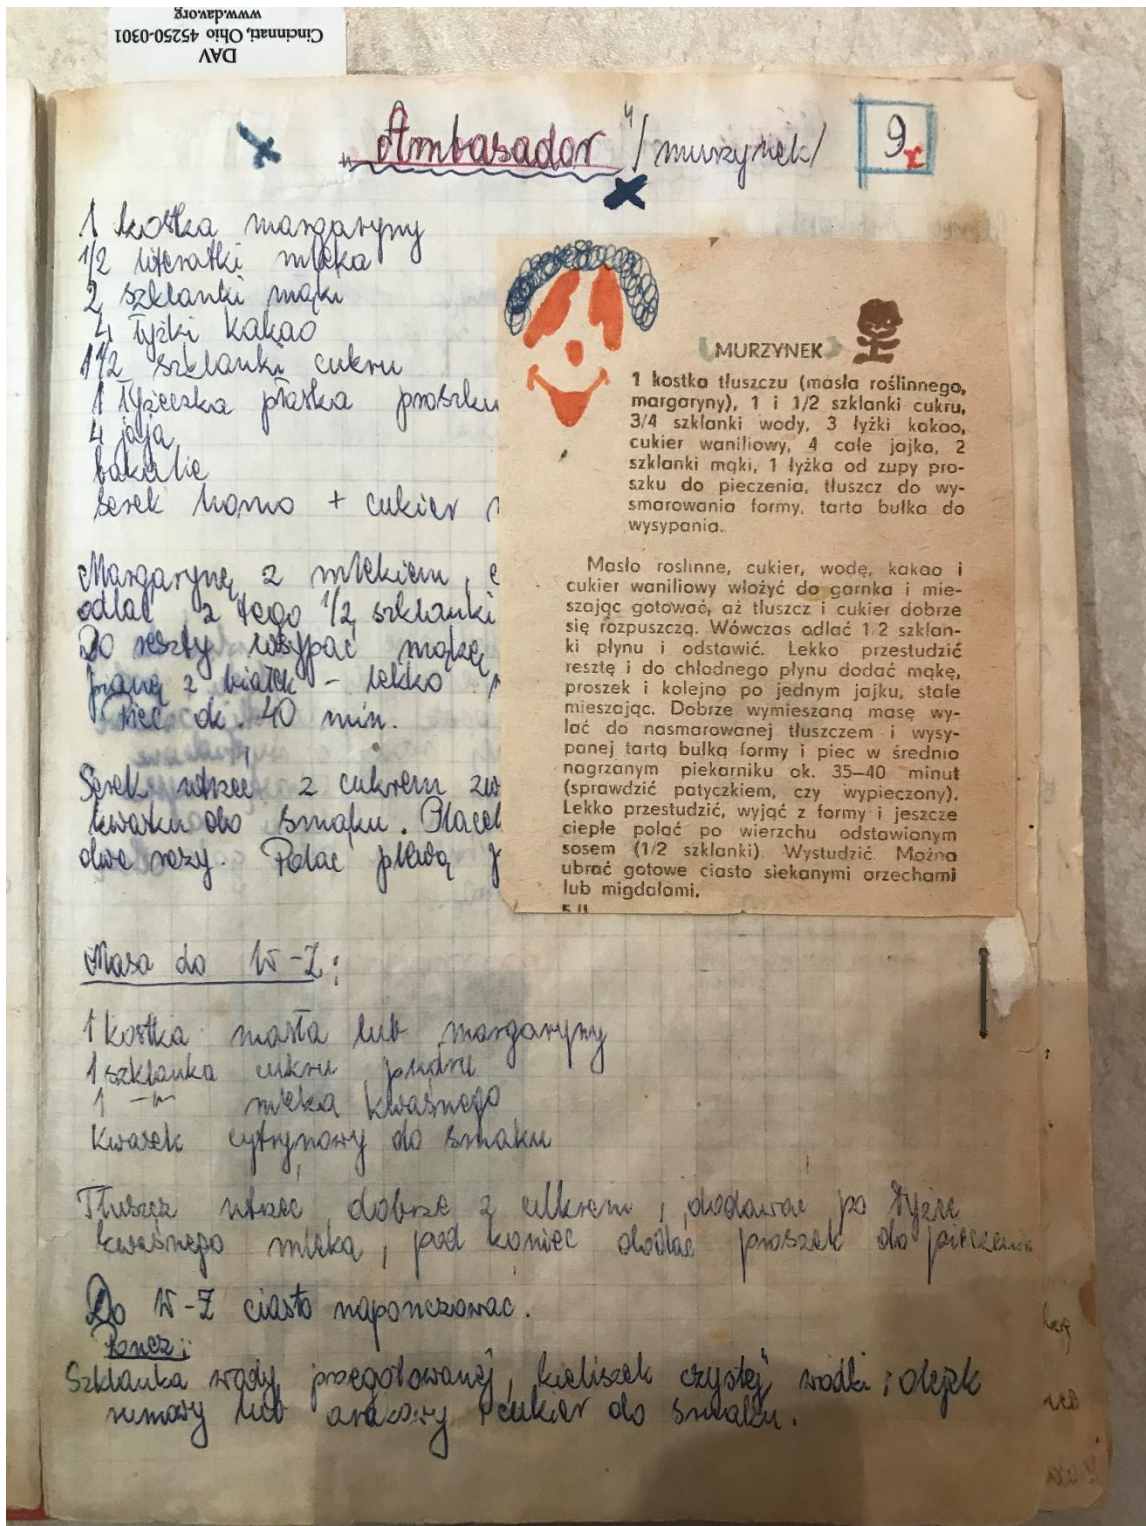 DAV
Cincinnati, Ohio 45250-0301
www.dav.org
"Ambasador" /murzynek/
9
1 kostka margaryny
1/2 literatki mleka
2 szklanki mąki
4 łyżki kakao
1 1/2 szklanki cukru
1 łyżeczka płaska proszku
4 jaja
bakalie
Serek homo + cukier
Margarynę z mlekiem,
odlać z tego 1/2 szklanki
Do reszty wsypać mąkę
pianę z białek - lekko
Piec ok. 40 min.
Serek utrzeć z cukrem
kwasku do smaku.
dwe razy. Polać
MURZYNEK
1 kostka tłuszczu (masła roślinnego,
margaryny), 1 i 1/2 szklanki cukru,
3/4 szklanki wody, 3 łyżki kakao,
cukier waniliowy, 4 całe jajka, 2
szklanki mąki, 1 łyżka od zupy pro-
szku do pieczenia, tłuszcz do wy-
smarowania formy, tarta bułka do
wysypania.
Masło roslinne, cukier, wodę, kakao i
cukier waniliowy włożyć do garnka i mie-
szając gotować, aż tłuszcz i cukier dobrze
się rozpuszczą. Wówczas odlać 1/2 szklan-
ki płynu i odstawić. Lekko przestudzić
resztę i do chłodnego płynu dodać mąkę,
proszek i kolejno po jednym jajku, stale
mieszając. Dobrze wymieszaną masę wy-
lać do nasmarowanej tłuszczem i wysy-
panej tartą bułką formy i piec w średnio
nagrzanym piekarniku ok. 35—40 minut
(sprawdzić patyczkiem, czy wypieczony).
Lekko przestudzić, wyjąć z formy i jeszcze
ciepłe polać po wierzchu odstawionym
sosem (1/2 szklanki). Wystudzić. Można
ubrać gotowe ciasto siekanymi orzechami
lub migdałami.
Masa do W-Z:
1 kostka masła lub margaryny
1 szklanka cukru pudru
1 -"- mleka kwaśnego
Kwasek cytrynowy do smaku
Tłuszcz utrzeć dobrze z cukrem, dodawać po łyżce
kwaśnego mleka, pod koniec dodać proszek do pieczenia
Do W-Z ciasto naponczować.
Poncz:
Szklanka wody przegotowanej, kieliszek czystej wódki i olejek
rumowy lub arakowy i cukier do smaku.